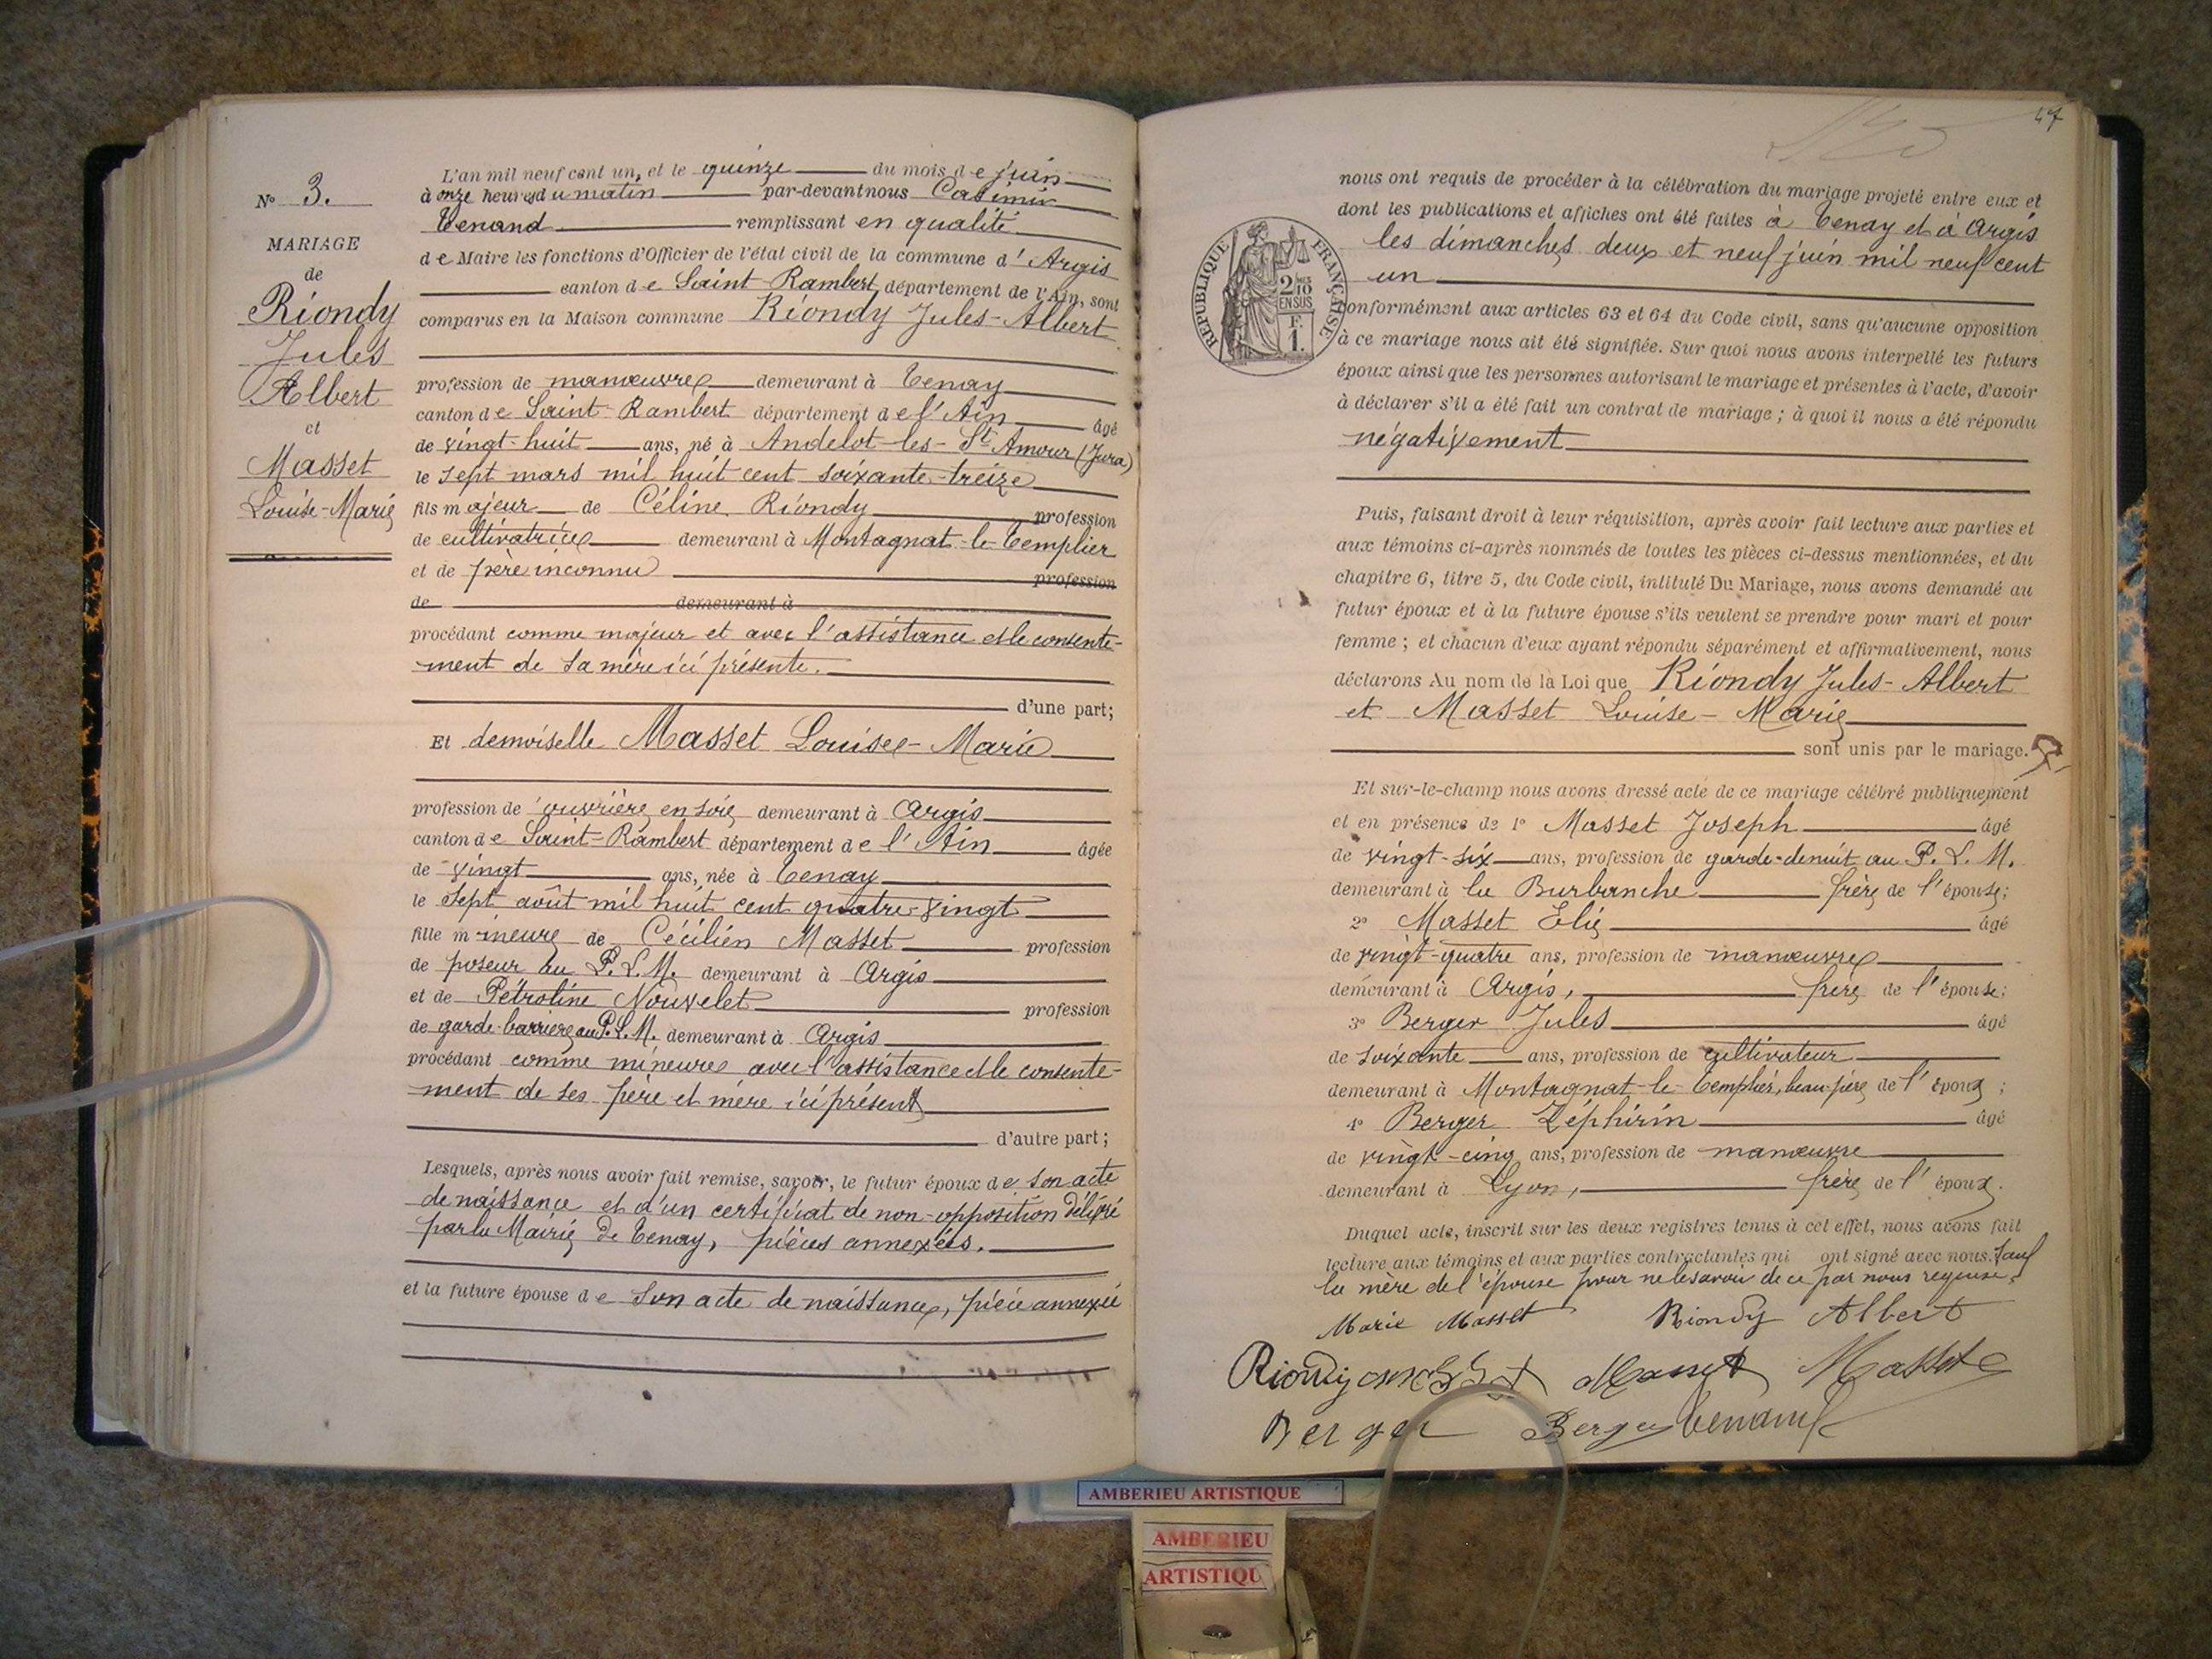 N° 3.
MARIAGE
de
Riondy
Jules
Albert
et
Masset
Louise-Marie
L'an mil neuf cent un, et le quinze du mois de juin
à onze heures du matin par-devant nous Casimir
Tenand remplissant en qualité
de Maire les fonctions d'Officier de l'état civil de la commune d'Argis
canton de Saint-Rambert, département de l'Ain, sont
comparus en la Maison commune Riondy Jules-Albert
profession de manœuvre demeurant à Tenay
canton de Saint-Rambert département de l'Ain âgé
de vingt-huit ans, né à Andelot-les-St Amour (Jura)
le sept mars mil huit cent soixante-treize
fils majeur de Céline Riondy profession
de cultivatrice demeurant à Montagnat-le-Templier
et de père inconnu profession
de demeurant à
procédant comme majeur et avec l'assistance et le consente-
ment de sa mère ici présente.
d'une part;
Et demoiselle Masset Louise-Marie
profession de ouvrière en soie demeurant à Argis
canton de Saint-Rambert département de l'Ain âgée
de vingt ans, née à Tenay
le sept août mil huit cent quatre-vingt
fille mineure de Cécilien Masset profession
de poseur au P.L.M. demeurant à Argis
et de Pétroline Nouvelet profession
de garde-barrière au P.L.M. demeurant à Argis
procédant comme mineure avec l'assistance et le consente-
ment de ses père et mère ici présents
d'autre part;
Lesquels, après nous avoir fait remise, savoir, le futur époux de son acte
de naissance et d'un certificat de non-opposition délivré
par la Mairie de Tenay, pièces annexées.
et la future épouse de son acte de naissance, pièce annexée
47
nous ont requis de procéder à la célébration du mariage projeté entre eux et
dont les publications et affiches ont été faites à Tenay et à Argis
les dimanches deux et neuf juin mil neuf cent
un
RÉPUBLIQUE FRANÇAISE
2/10
EN SUS
F.
1.
conformément aux articles 63 et 64 du Code civil, sans qu'aucune opposition
à ce mariage nous ait été signifiée. Sur quoi nous avons interpellé les futurs
époux ainsi que les personnes autorisant le mariage et présentes à l'acte, d'avoir
à déclarer s'il a été fait un contrat de mariage; à quoi il nous a été répondu
négativement
Puis, faisant droit à leur réquisition, après avoir fait lecture aux parties et
aux témoins ci-après nommés de toutes les pièces ci-dessus mentionnées, et du
chapitre 6, titre 5, du Code civil, intitulé Du Mariage, nous avons demandé au
futur époux et à la future épouse s'ils veulent se prendre pour mari et pour
femme; et chacun d'eux ayant répondu séparément et affirmativement, nous
déclarons Au nom de la Loi que Riondy Jules-Albert
et Masset Louise-Marie
sont unis par le mariage.
Et sur-le-champ nous avons dressé acte de ce mariage célébré publiquement
et en présence de 1° Masset Joseph âgé
de vingt-six ans, profession de garde-de nuit au P.L.M.
demeurant à la Burbanche frère de l'épouse;
2° Masset Elie âgé
de vingt-quatre ans, profession de manœuvre
demeurant à Argis, frère de l'épouse;
3° Berger Jules âgé
de soixante ans, profession de cultivateur
demeurant à Montagnat-le-Templier, beau-père de l'époux;
4° Berger Zéphirin âgé
de vingt-cinq ans, profession de manœuvre
demeurant à Lyon, frère de l'époux.
Duquel acte, inscrit sur les deux registres tenus à cet effet, nous avons fait
lecture aux témoins et aux parties contractantes qui ont signé avec nous. Sauf
la mère de l'épouse pour ne le savoir de ce par nous requise.
Marie Masset Riondy Albert
Riondy Masset Masset
Berger Berger Tenand
AMBERIEU ARTISTIQUE
AMBERIEU
ARTISTIQU